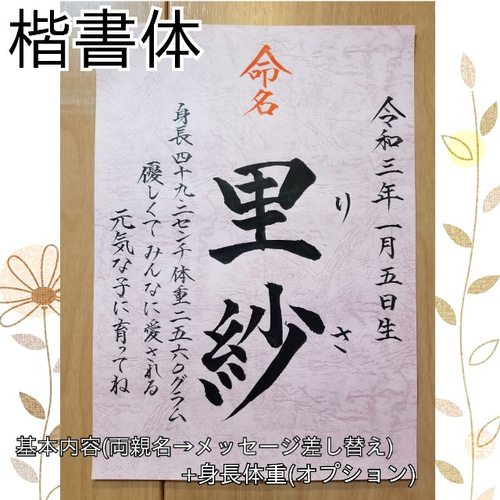 楷書体
命名
令和三年一月五日生
里紗
りさ
身長四十九.二センチ体重二五六〇グラム
優しくてみんなに愛される
元気な子に育ってね
基本内容(両親名→メッセージ差し替え)
+身長体重(オプション)